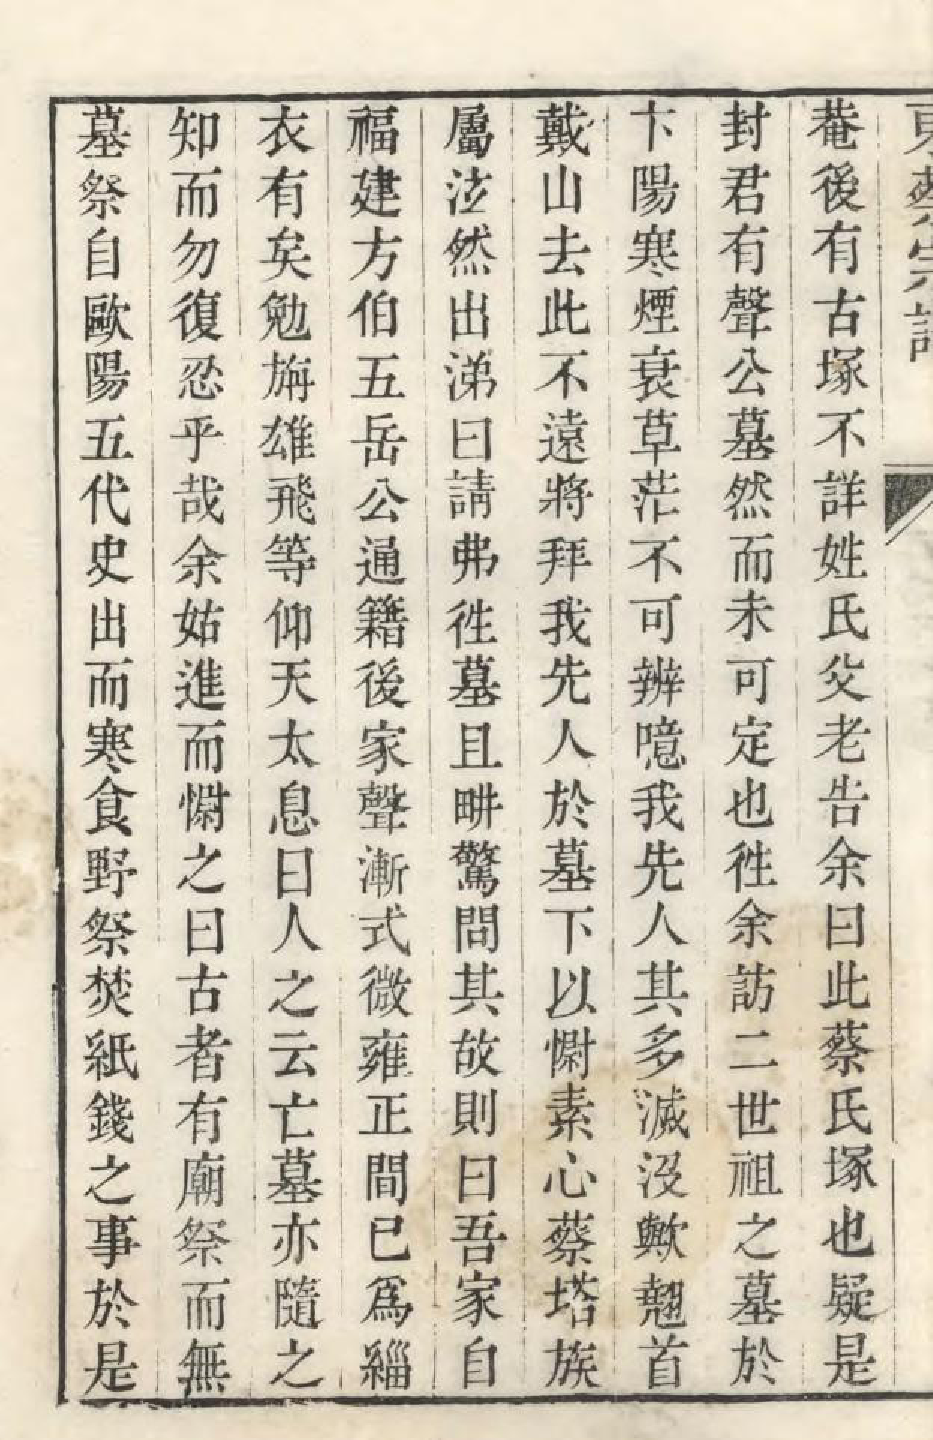 東蔡宗譜
菴後有古塚不詳姓氏父老告余曰此蔡氏塚也疑是
封君有聲公墓然而未可定也徃余訪二世祖之墓於
卞陽寒煙衰草茫不可辨噫我先人其多滅没歟翹首
戴山去此不遠將拜我先人於墓下以慰素心蔡塔族
屬泣然出涕曰請弗徃墓且畊驚問其故則曰吾家自
福建方伯五岳公通籍後家聲漸式微雍正間已爲緇
衣有矣勉旃雄飛等仰天太息曰人之云亡墓亦隨之
知而勿復忍乎哉余姑進而慰之曰古者有廟祭而無
墓祭自歐陽五代史出而寒食野祭焚紙錢之事於是